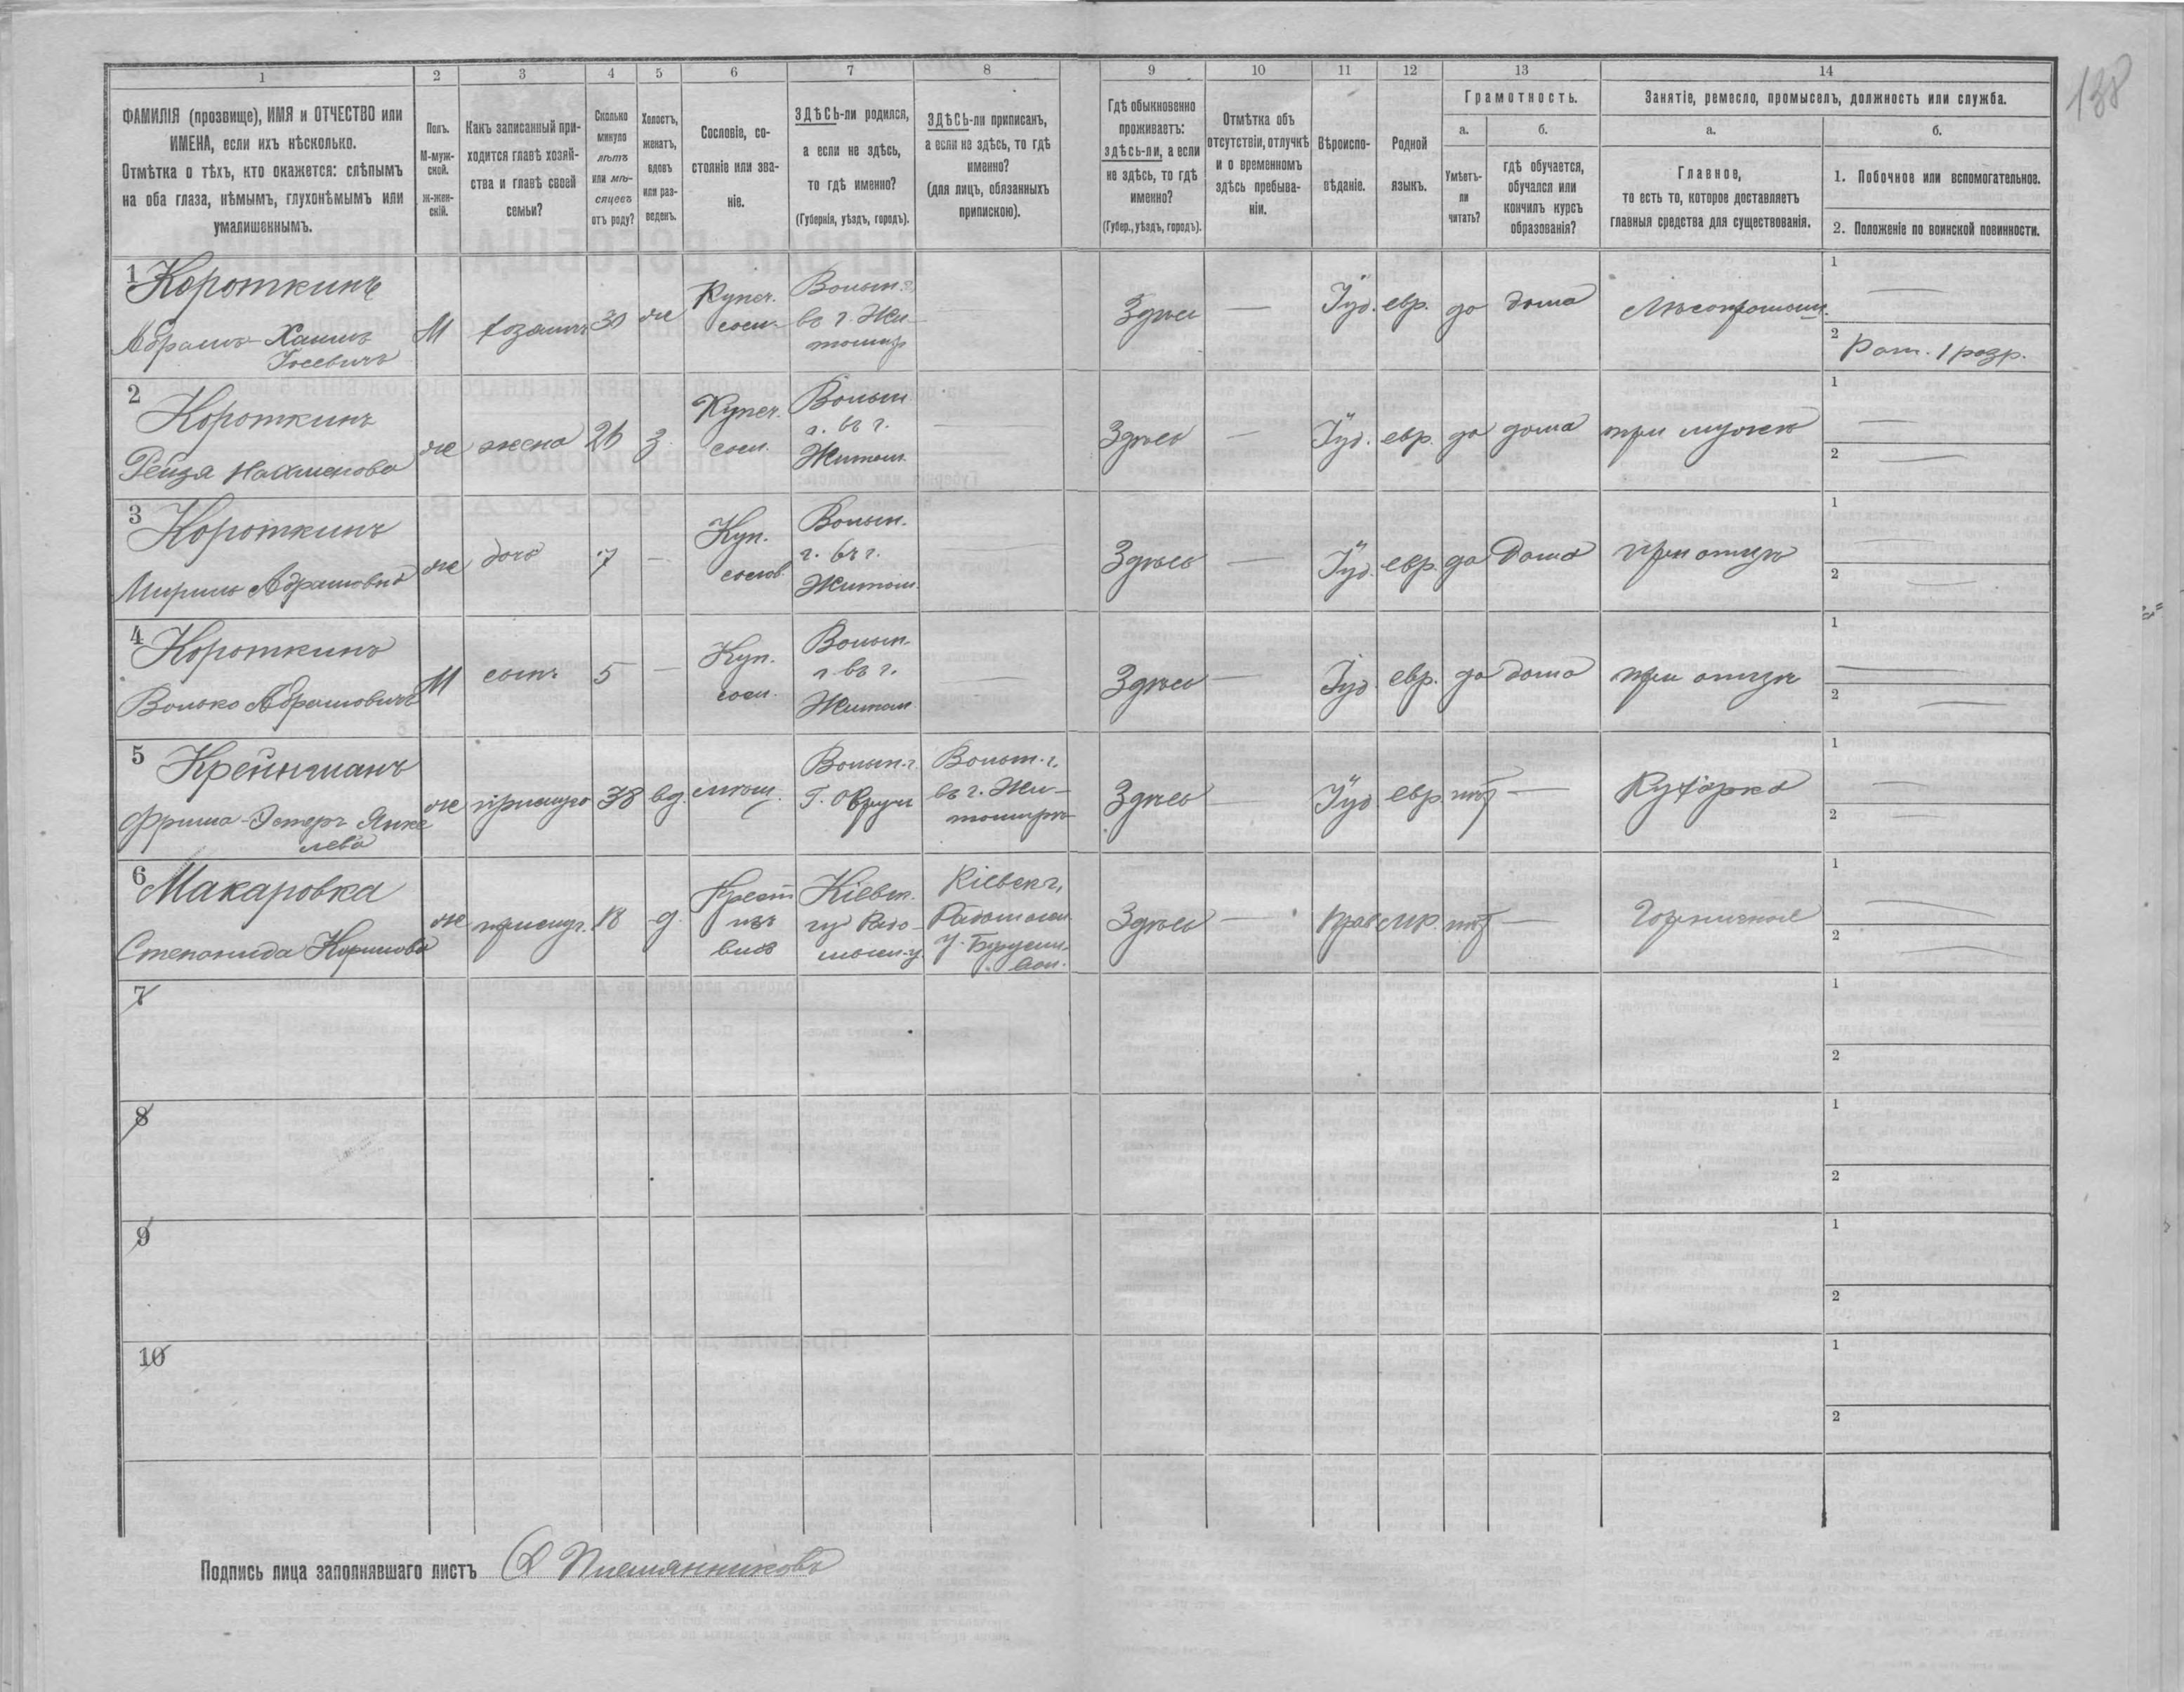 138
1
2
3
4
5
6
7
8
9
10
11
12
13
14
ФАМИЛІЯ (прозвище), ИМЯ и ОТЧЕСТВО или
ИМЕНА, если ихъ нѣсколько.
Отмѣтка о тѣхъ, кто окажется: слѣпымъ
на оба глаза, нѣмымъ, глухонѣмымъ или
умалишеннымъ.
Полъ.
М-муж-
ской.
ж-жен-
скій.
Какъ записанный при-
ходится главѣ хозяй-
ства и главѣ своей
семьи?
Сколько
минуло
лѣтъ
или мѣ-
сяцевъ
отъ роду?
Холостъ,
женатъ,
вдовъ
или раз-
веденъ.
Сословіе, со-
стояніе или зва-
ніе.
ЗДѢСЬ-ли родился,
а если не здѣсь,
то гдѣ именно?
(Губернія, уѣздъ, городъ).
ЗДѢСЬ-ли приписанъ,
а если не здѣсь, то гдѣ
именно?
(для лицъ, обязанныхъ
припискою).
Гдѣ обыкновенно
проживаетъ:
здѣсь-ли, а если
не здѣсь, то гдѣ
именно?
(Губер., уѣздъ, городъ).
Отмѣтка объ
отсутствіи, отлучкѣ
и о временномъ
здѣсь пребыва-
ніи.
Вѣроиспо-
вѣданіе.
Родной
языкъ.
Грамотность.
а.
Умѣетъ-
ли
читать?
б.
гдѣ обучается,
обучался или
кончилъ курсъ
образованія?
Занятіе, ремесло, промыселъ, должность или служба.
а.
Главное,
то есть то, которое доставляетъ
главныя средства для существованія.
б.
1. Побочное или вспомогательное.
2. Положеніе по воинской повинности.
1 Короткинъ
Абрамъ-Хаимъ
Іосевичъ
М
хозяинъ
30
же
Купеч.
сосл.
Волын. г.
въ г. Жи-
томир
Здѣсь
—
Іуд.
евр.
да
дома
Лѣсопромыш.
1 —
2 Рат. 1 разр.
2 Короткинъ
Рейзя Нахменова
же
жена
26
з.
Купеч.
сосл.
Волын
г. въ г.
Житом.
—
Здѣсь
—
Іуд.
евр.
да
дома
при мужѣ
1 —
2 —
3 Короткинъ
Миримъ Абрамовна
же
дочь
7
—
Куп.
сослов.
Волын.
г. въ г.
Житом.
—
Здѣсь
—
Іуд.
евр.
да
дома
при отцѣ
1 —
2 —
4 Короткинъ
Волько Абрамовичъ
М
сынъ
5
—
Куп.
сосл.
Волын.
г въ г.
Житом
—
Здѣсь
—
Іуд.
евр.
да
дома
при отцѣ
1 —
2 —
5 Крейнманъ
Фрима-Эстеръ Янке
лева
же
прислуга
38
вд.
мѣщ.
Волын. г.
Г. Овручъ
Волын. г.
въ г. Жи-
томирѣ
Здѣсь
—
Іуд
евр
нѣт
—
Кухарка
1 —
2 —
6 Макаровка
Степанида Каримова
же
прислуг.
18
д.
Крест
изъ
Кіевск.
гу Радо-
мысл. у
Кіевск г.
Радомысл
у.
Здѣсь
—
Прав
мр.
нѣт
—
Горничная
1 —
2 —
7
1
2
8
1
2
9
1
2
10
1
2
Подпись лица заполнявшаго листъ Племянниковъ